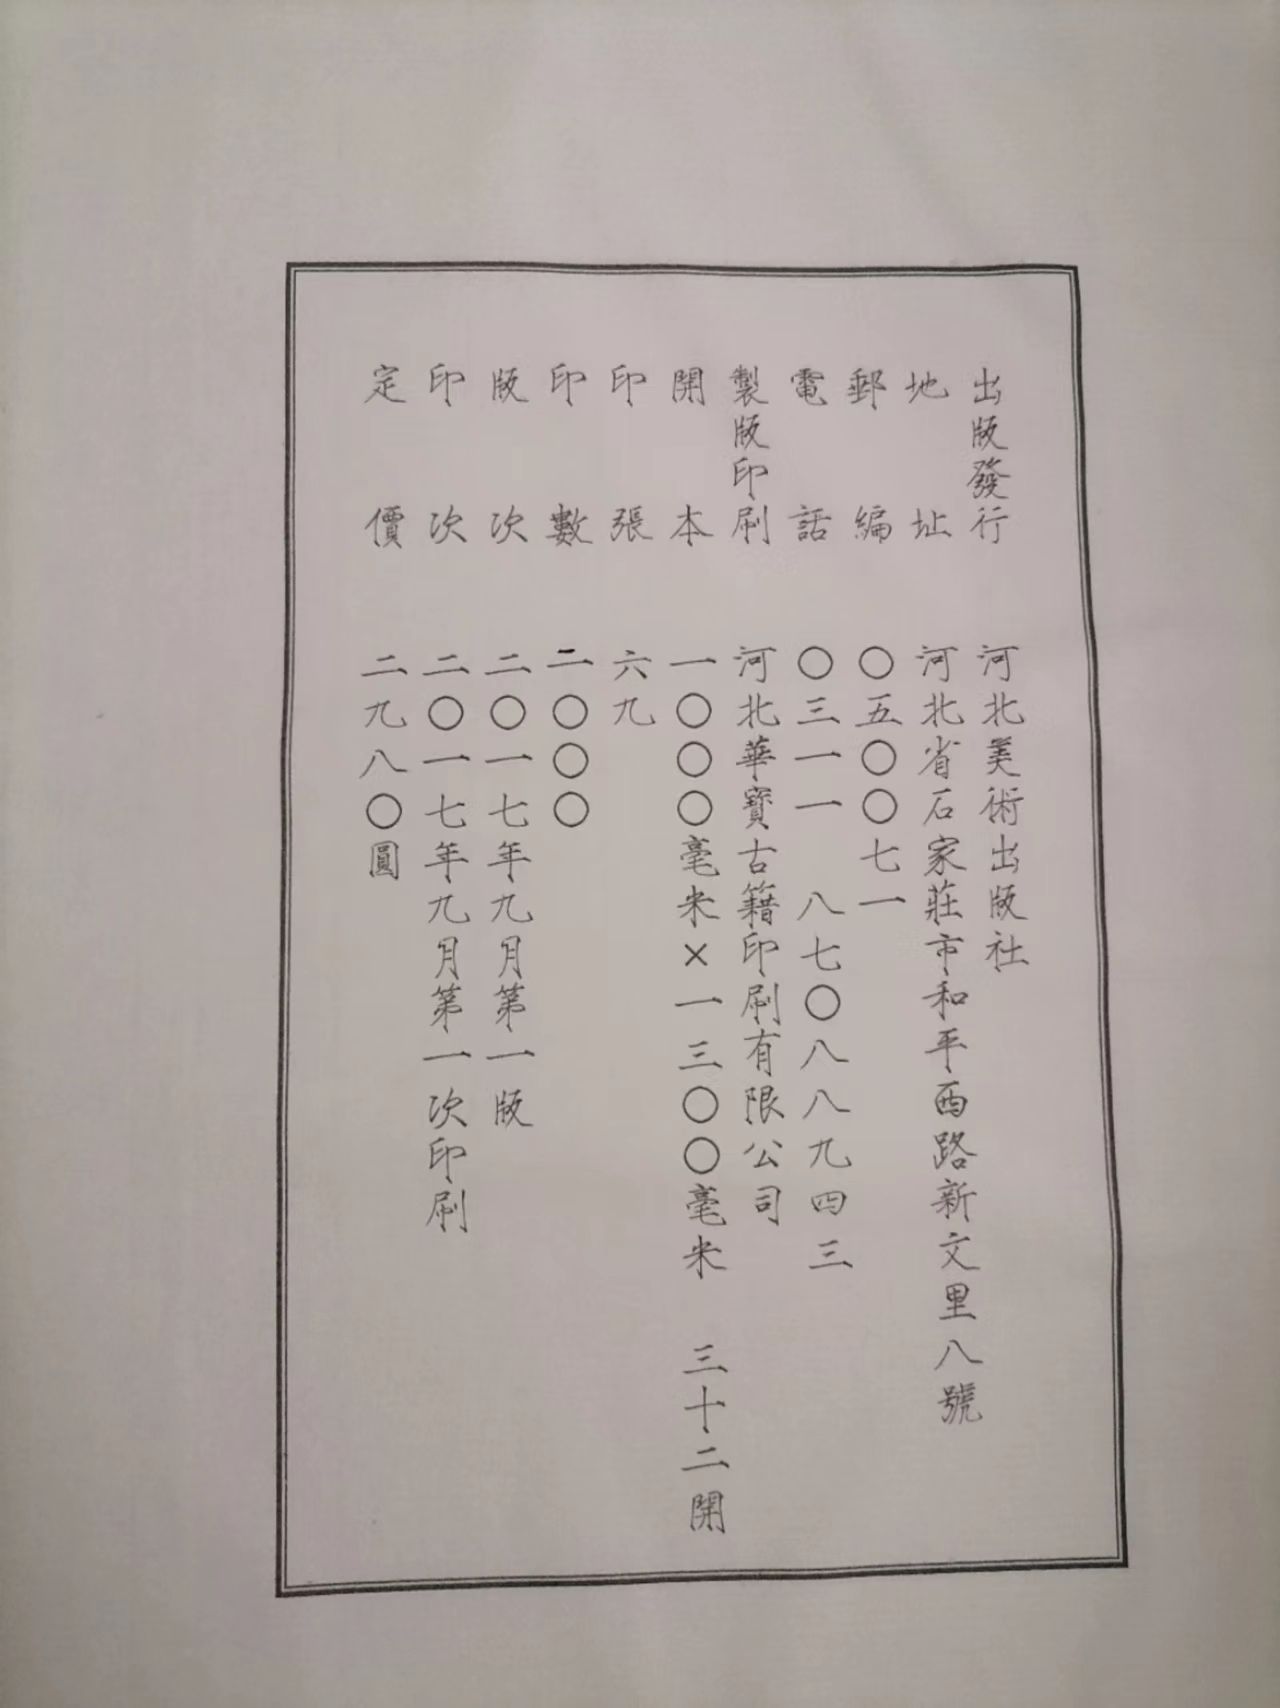 出版發行 河北美術出版社
地址 河北省石家莊市和平西路新文里八號
郵編 〇五〇〇七一
電話 〇三一一 八七〇八八九四三
製版印刷 河北華寶古籍印刷有限公司
開本 一〇〇〇毫米×一三〇〇毫米 三十二開
印張 六九
印數 二〇〇〇
版次 二〇一七年九月第一版
印次 二〇一七年九月第一次印刷
定價 二九八〇圓